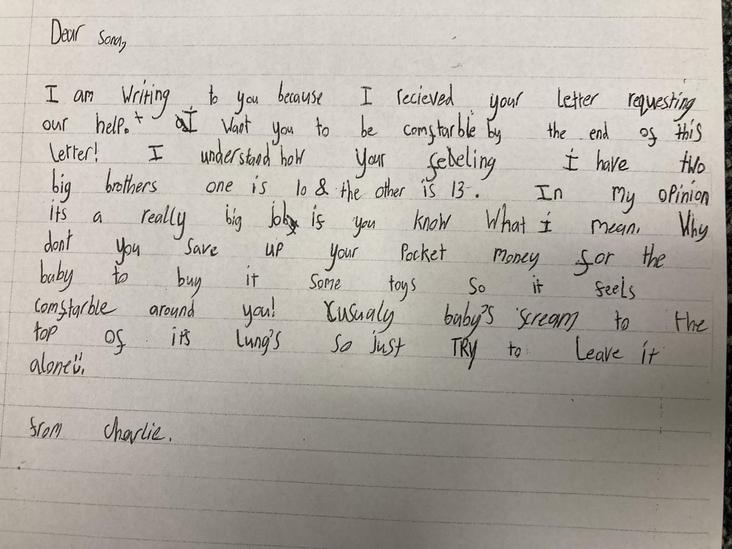 Dear Sona,
I am Writing to you because I recieved your Letter requesting
our help. I Want you to be comftarble by the end of this
letter! I understand how your feeling I have two
big brothers one is 10 & the other is 13. In my opinion
its a really big job if you know What I mean. Why
dont you save up your Pocket money for the
baby to buy it some toys so it feels
comftarble around you! usualy baby's scream to the
top of its Lung's so just TRY to Leave it
alone
from charlie.